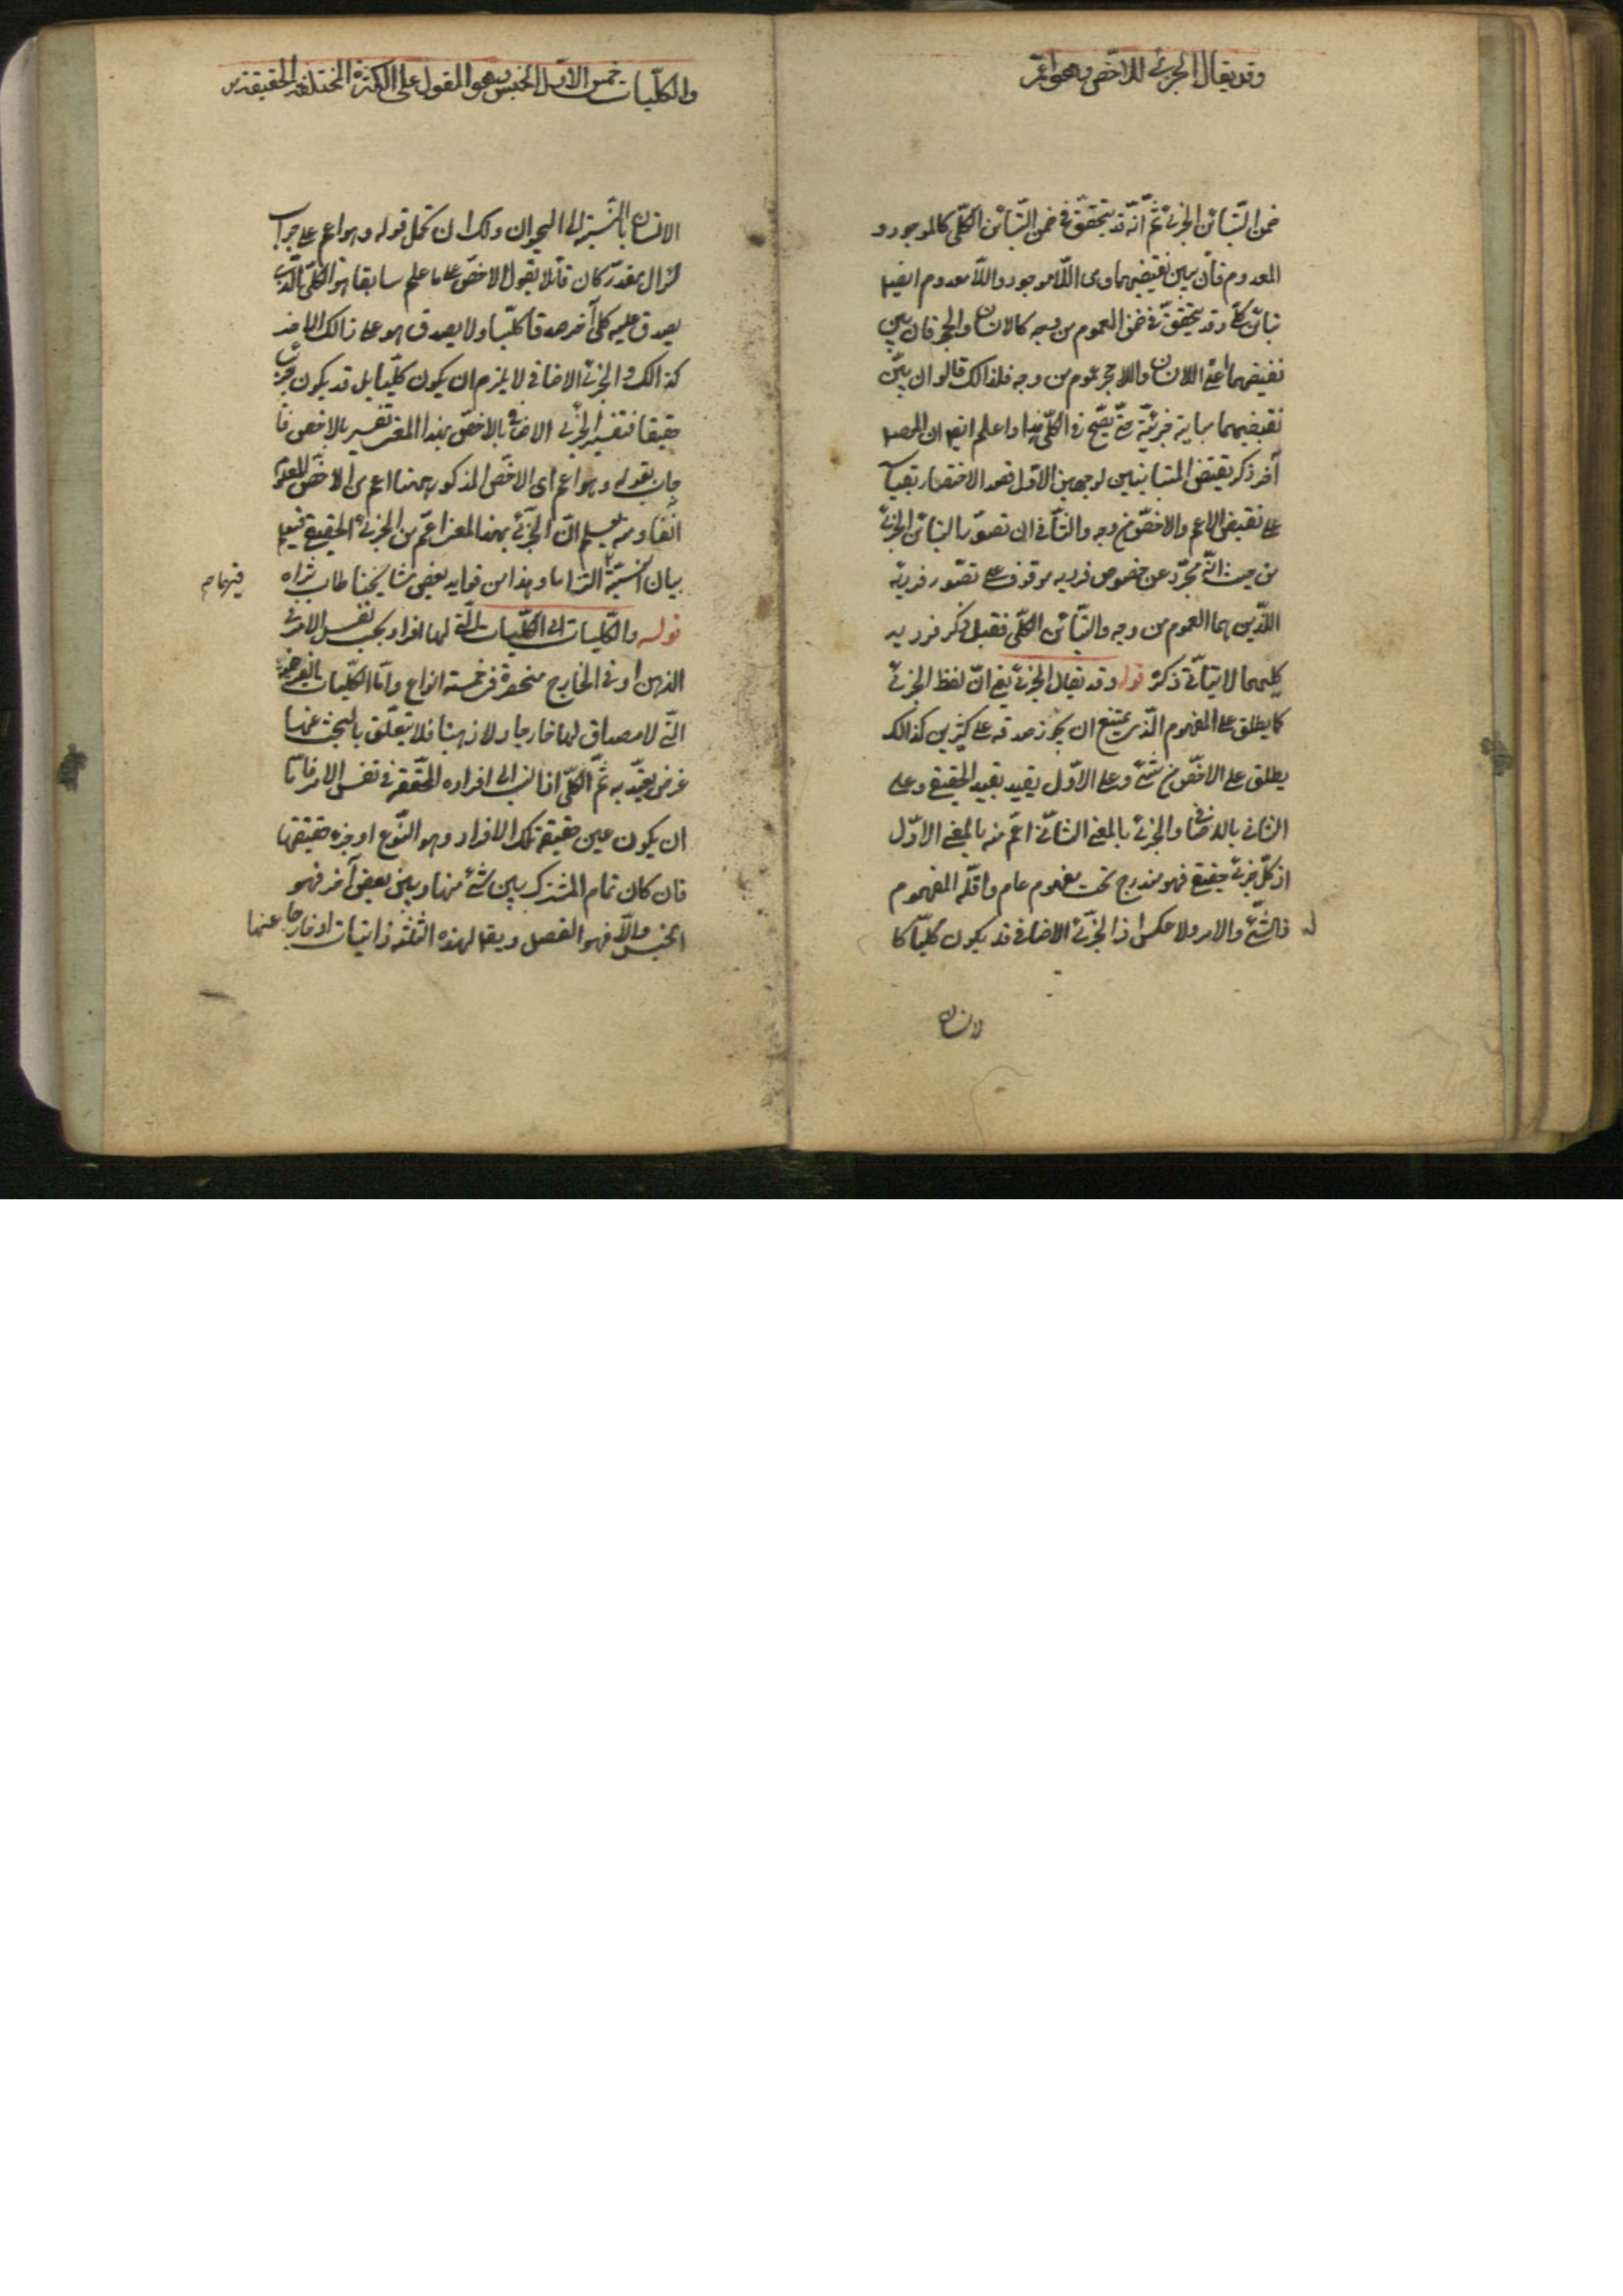 وقد يقال الجزئي للاخص وهو اعم
ضمن التباين الجزئي ثم انه قد يتحقق في ضمن التباين الكلي كالموجود و
المعدوم فان بين نقيضيهما وى اللا موجود واللا معدوم ايضا
تباين كلي وقد يتحقق في ضمن العموم من وجه كالانسان والحجر فان بين
نقيضيهما اعني اللا انسان واللا حجر عموم من وجه فلذالك قالوا ان بين
نقيضيهما مباينة جزئية حتى يصح في الكل هذا واعلم ايضا ان المص
آخر ذكر نقيض المتباينين لوجهين الاول قصد الاختصار بقياسه
على نقيض الاعم والاخص من وجه والثاني ان تصور التباين الجزئي
من حيث انه مجرد عن خصوص فرديه موقوف على تصور فرديه
اللذين هما العموم من وجه والتباين الكلي فقبل ذكر فرديه
كليهما لا يتاتي ذكره قوله وقد يقال الجزئي يع ان لفظ الجزئي
كما يطلق على المفهوم الذي يمتنع ان يجوز صدقه على كثيرين كذالك
يطلق على الاخص من شئ وعلى الاول يقيد بقيد الحقيقي وعلى
الثاني بالاضافي والجزئي بالمعني الثاني اعم منه بالمعني الاول
اذ كل جزئي حقيقي فهو مندرج تحت مفهوم عام واقله المفهوم
والشئ والامر ولا عكس اذ الجزئي الاضافي قد يكون كليا كا
لانسان
والكليات خمس الاول الجنس وهو المقول على الكثرة المختلفة الحقيقة في
الانسان بالنسبة الى الحيوان ولك ان تحمل قوله وهو اعم على جواب
سؤال مقدر كان قائلا يقول الاخص على ما علم سابقا هو الكلي الذي
يصدق عليه كلي آخر صدقا كليا ولا يصدق هو على ذالك الاخر
كذالك والجزئي الاضافي لا يلزم ان يكون كليا بل قد يكون جزئيا
حقيقا فتفسير الجزئي الاضافي بالاخص بهذا المعنى تفسير بالاخص فا
جاب بقوله وهو اعم اى الاخص المذكور ههنا اعم من الاخص المعلوم
آنفا ومنه يعلم ان الجزئي بهذا المعنى اعم من الجزئي الحقيقي فيعلم
بيان النسبة التزاما وهذا من فوايد بعض مشايخنا طاب ثراه
قوله والكليات اي الكليات التي لها افراد بحسب نفس الامر في
الذهن او في الخارج منحصرة في خمسة انواع واما الكليات الفرضية
التي لا مصداق لها خارجا ولا ذهنا فلا يتعلق بالبحث عنها
غرض يعتد به ثم الكلي اذا نسب الى افراده المحققة في نفس الامر فاما
ان يكون عين حقيقة تلك الافراد وهو النوع او جزء حقيقتها
فان كان تمام المشترك بين شئ منها وبين بعض آخر فهو
الجنس والا فهو الفصل ويقا لهذه الثلثة ذاتيات او خارجا عنها